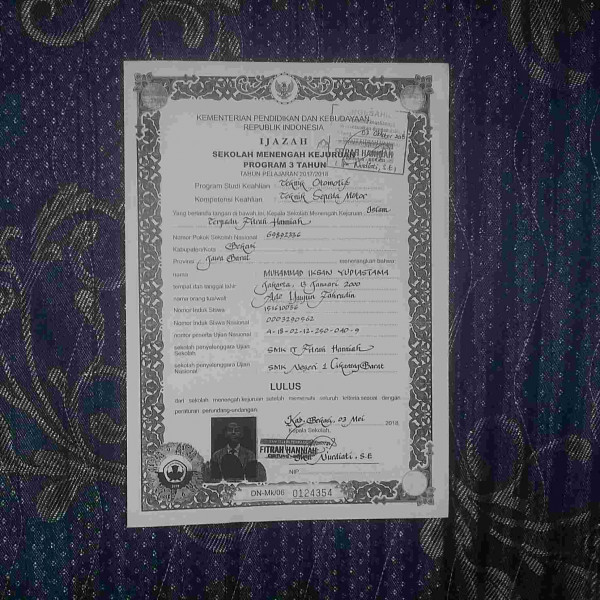 KEMENTERIAN PENDIDIKAN DAN KEBUDAYAAN
REPUBLIK INDONESIA
IJAZAH
SEKOLAH MENENGAH KEJURUAN
PROGRAM 3 TAHUN
TAHUN PELAJARAN 2017/2018
FITRAH HANNIAH
Nurdiati, S.E
Program Studi Keahlian : Teknik Otomotif
Kompetensi Keahlian : Teknik Sepeda Motor
Yang bertanda tangan di bawah ini, Kepala Sekolah Menengah Kejuruan Islam
Terpadu Fitrah Hanniah
Nomor Pokok Sekolah Nasional
Kabupaten/Kota Bekasi
Provinsi Jawa Barat menerangkan bahwa:
nama MUHAMMAD IKSAN YUDIASTAMA
tempat dan tanggal lahir Jakarta, 13 Januari 2000
nama orang tua/wali Ade
Nomor Induk Siswa
Nomor Induk Siswa Nasional
nomor peserta Ujian Nasional 4-18-02-12-260-040-9
sekolah penyelenggara Ujian Sekolah SMK IT Fitrah Hanniah
sekolah penyelenggara Ujian Nasional SMK Negeri 1 Cikarang Barat
LULUS
dari sekolah menengah kejuruan setelah memenuhi seluruh kriteria sesuai dengan
peraturan perundang-undangan.
Kab. Bekasi, 03 Mei 2018
Kepala Sekolah,
FITRAH HANNIAH
Nurdiati, S.E
NIP
DN-MK/06 0124354